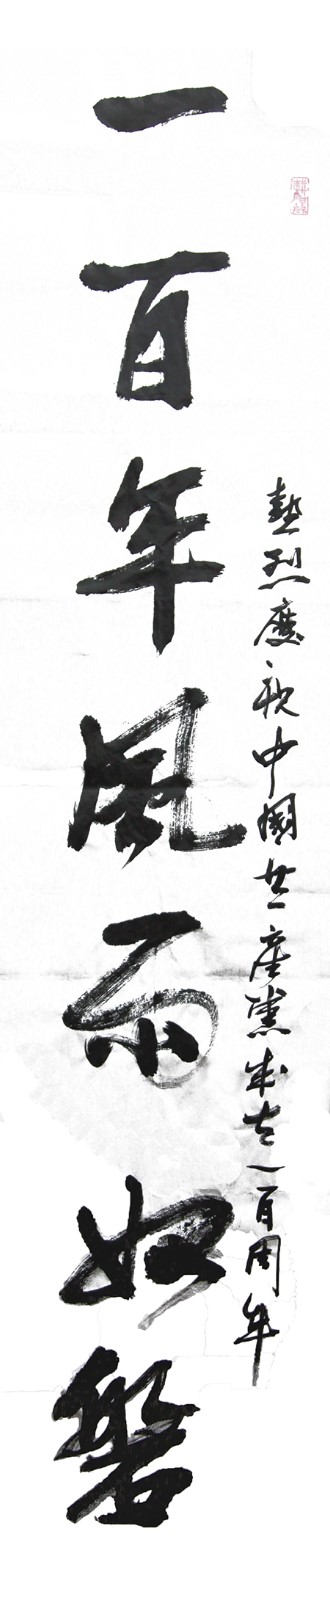 熱烈慶祝中國共產黨成立一百周年
一百年風雨如磐